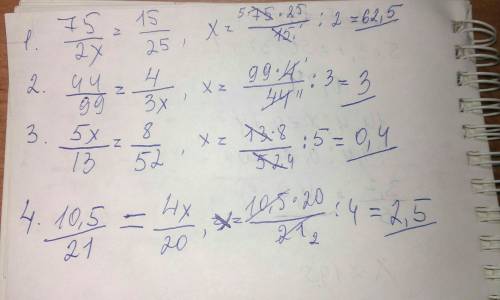 1. 75/2x = 15/25, x = 75·25/15 : 2 = 62,5
2. 44/99 = 4/3x, x = 99·4/44 : 3 = 3
3. 5x/13 = 8/52, x = 13·8/52 4 : 5 = 0,4
4. 10,5/21 = 4x/20, x = 10,5·20/21 2 : 4 = 2,5